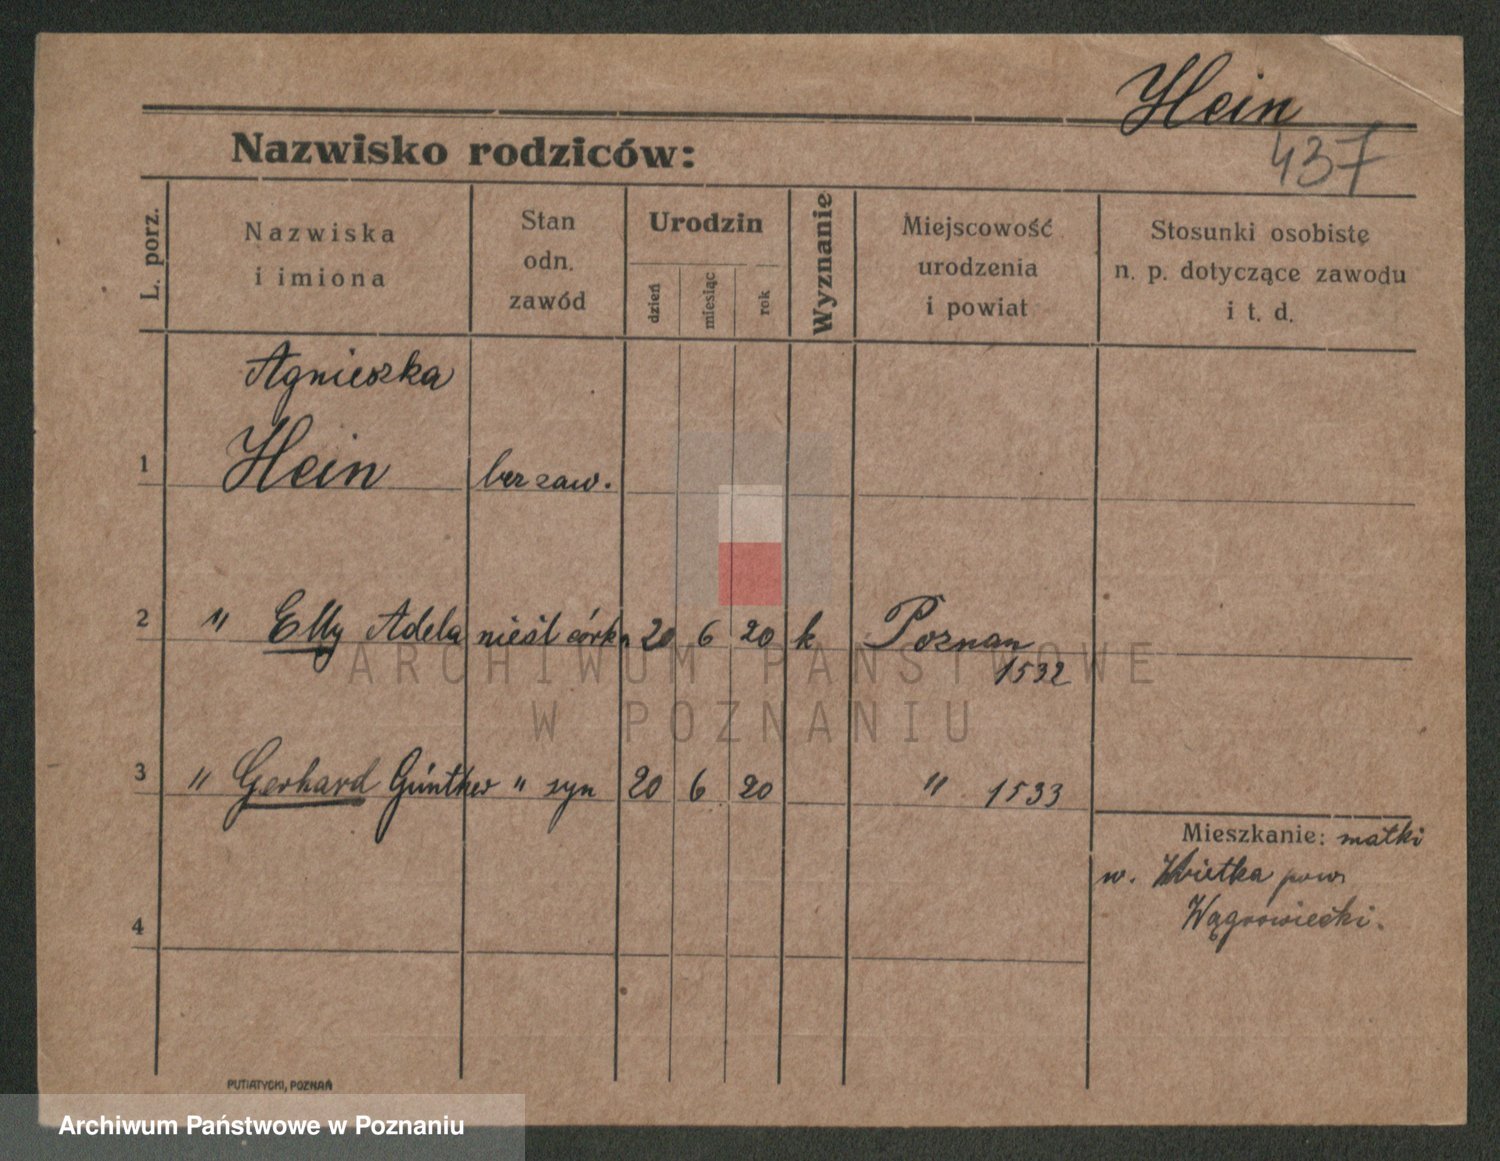 Hein
437
Nazwisko rodziców:
L. porz.
Nazwiska
i imiona
Stan
odn.
zawód
Urodzin
dzień
miesiąc
rok
Wyznanie
Miejscowość
urodzenia
i powiat
Stosunki osobiste
n. p. dotyczące zawodu
i t. d.
Agnieszka
1 Hein bez zaw.
2 " Elly Adela nieśl córka 20 6 20 k Poznan
1532
3 " Gerhard Günther " syn 20 6 20 " 1533
Mieszkanie: matki
w. pow.
Wągrowiecki.
4
ARCHIWUM PAŃSTWOWE
W POZNANIU
PUTIATYCKI, POZNAŃ
Archiwum Państwowe w Poznaniu